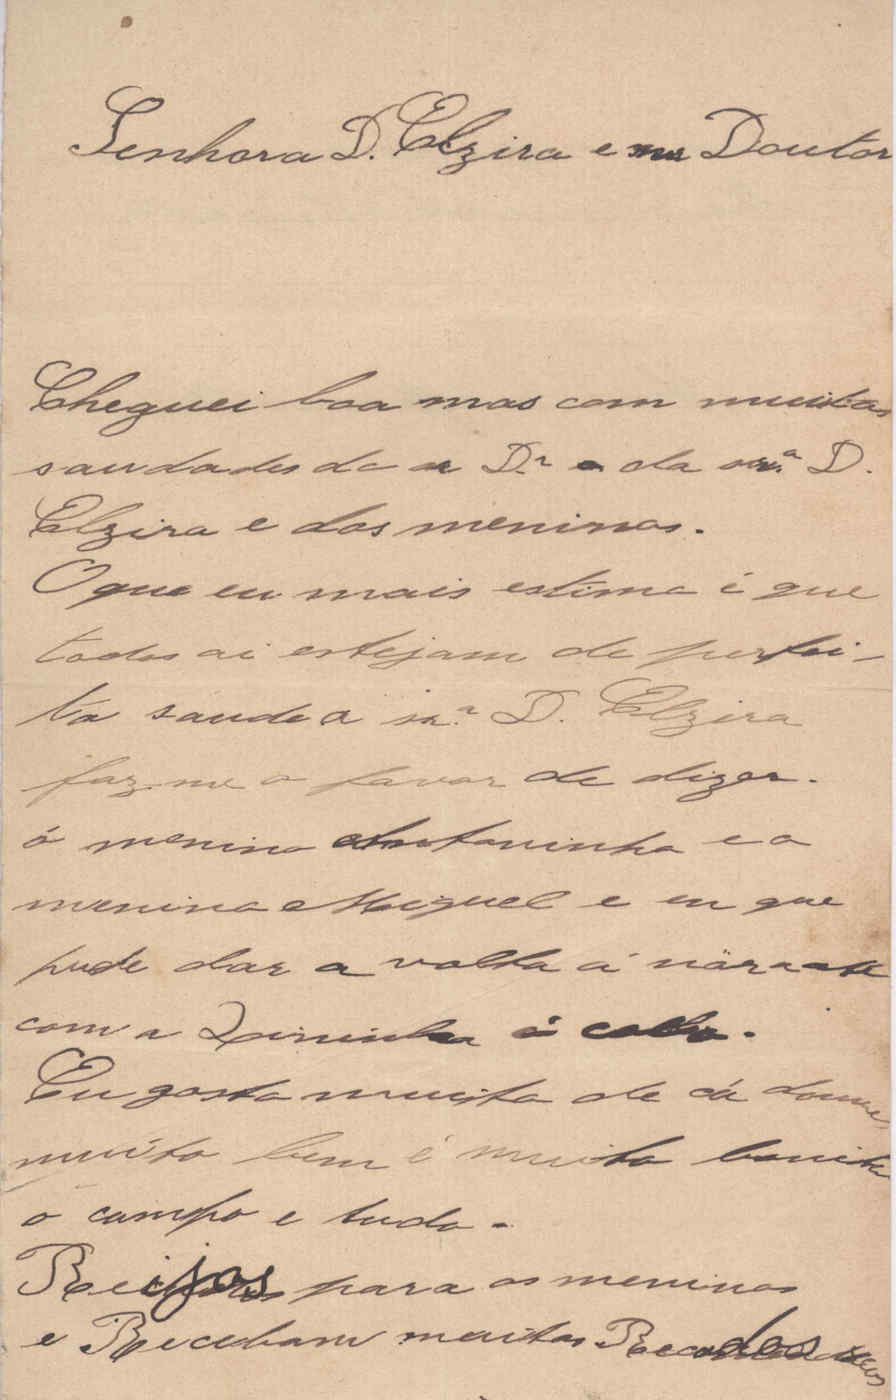 Senhora D. Elzira e snr Doutor
Cheguei boa mas com muitas
saudades do sr Dr e da snrª D.
Elzira e dos meninos.
O que eu mais estimo é que
todos ai estejam de perfei-
ta saude a snrª D. Elzira
faz-me o favor de dizer
ó menino Antoninho e o
menino Miguel e eu que
pude dar a volta á nóra
com a Zirinha ó collo.
Eu gosto muito de cá
muito bem é muito bonito
o campo e tudo.
Beijos para os meninos
e Recebam muitos Recados